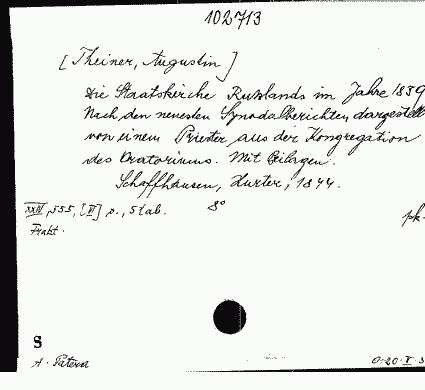 102713
[Theiner, Augustin]
Die Staatskirche Russlands im Jahre 1839
Nach den neuesten Synodalberichten dargestellt
von einem Priester aus der Kongregation
des Oratoriums. Mit Beilagen.
Schaffhausen, Hurter, 1844.
XXIV, 555, [VI] s., 5 tab. 8°
Frakt. pk.
S
A. Patera